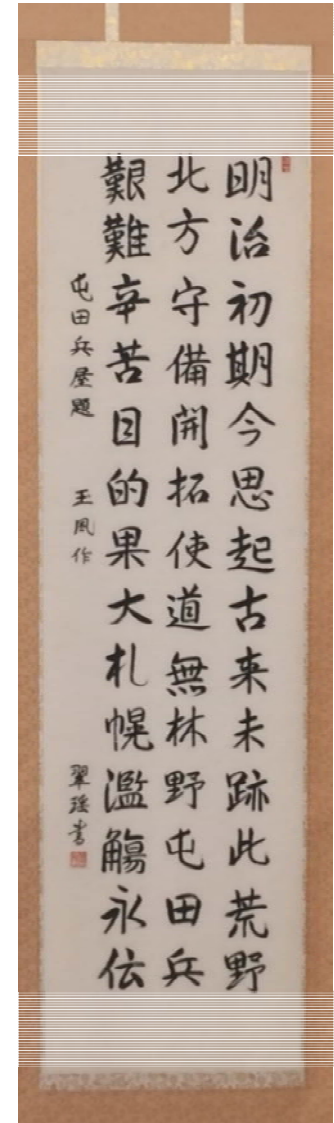 明治初期今思起古来未跡此荒野
北方守備開拓使道無林野屯田兵
艱難辛苦目的果大札幌濫觴永伝
屯田兵屋題 王風作 翠瑶書